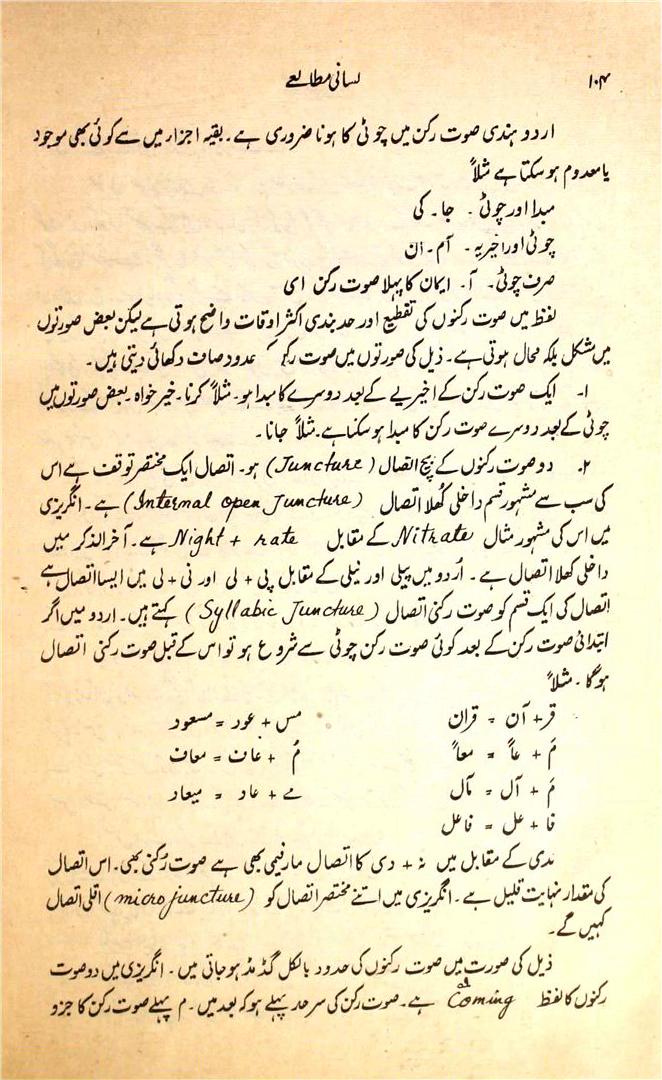 ۱۰۴
لسانی مطالعے
اردو ہندی صوت رکن میں چوٹی کا ہونا ضروری ہے۔ بقیہ اجزار میں سے کوئی بھی موجود
یا معدوم ہو سکتا ہے مثلاً
مبدا اور چوٹی ۔ جا ۔ کی
چوٹی اور اخیریہ ۔ آم ۔ اِن
صرف چوٹی ۔ آ ۔ ایمان کا پہلا صوت رکن ای
لفظ میں صوت رکنوں کی تقطیع اور حد بندی اکثر اوقات واضح ہوتی ہے لیکن بعض صورتوں
میں مشکل بلکہ محال ہوتی ہے۔ ذیل کی صورتوں میں صوت حدود صاف دکھائی دیتی ہیں۔
۱۔ ایک صوت رکن کے اخیریے کے بعد دوسرے کا مبدا ہو۔ مثلاً کرنا۔ خیر خواہ۔ بعض صورتوں میں
چوٹی کے بعد دوسرے صوت رکن کا مبدا ہو سکتا ہے۔ مثلاً جانا۔
۲۔ دو صوت رکنوں کے بیچ اتصال (Juncture) ہو۔ اتصال ایک مختصر توقف ہے اس
کی سب سے مشہور قسم داخلی کُھلا اتصال (Internal open Juncture) ہے۔ انگریزی
میں اس کی مشہور مثال Nitrate کے مقابل Night + rate ہے۔ آخر الذکر میں
داخلی کھلا اتصال ہے۔ اُردو میں پیلی اور نیلی کے مقابل پی + لی اور نی + لی میں ایسا اتصال ہے
اِتصال کی ایک قسم کو صوت رکنی اتصال (Syllabic Juncture) کہتے ہیں۔ اردو میں اگر
ابتدائی صوت رکن کے بعد کوئی صوت رکن چوٹی سے شروع ہو تو اس کے قبل صوت رکنی اتصال
ہوگا۔ مثلاً
قر + آن = قران مس + عود = مسعود
مَ + عاً = معاً مُ + عاف = معاف
مَ + آل = مآل مے + عاد = میعاد
فا + عل = فاعل
ندی کے مقابل میں نہ + دی کا اتصال مارفیمی بھی ہے صوت رُکنی بھی۔ اس اتصال
کی مقدار نہایت قلیل ہے۔ انگریزی میں اتنے مختصر اتصال کو (micro juncture) اقلی اتصال
کہیں گے۔
ذیل کی صورت میں صوت رکنوں کی حدود بالکل گڈ مڈ ہو جاتی ہیں۔ انگریزی میں دو صوت
رکنوں کا لفظ Coming ہے۔ صوت رکن کی سرحد پہلے ہو کہ بعد میں۔ م پہلے صوت رکن کا جزو